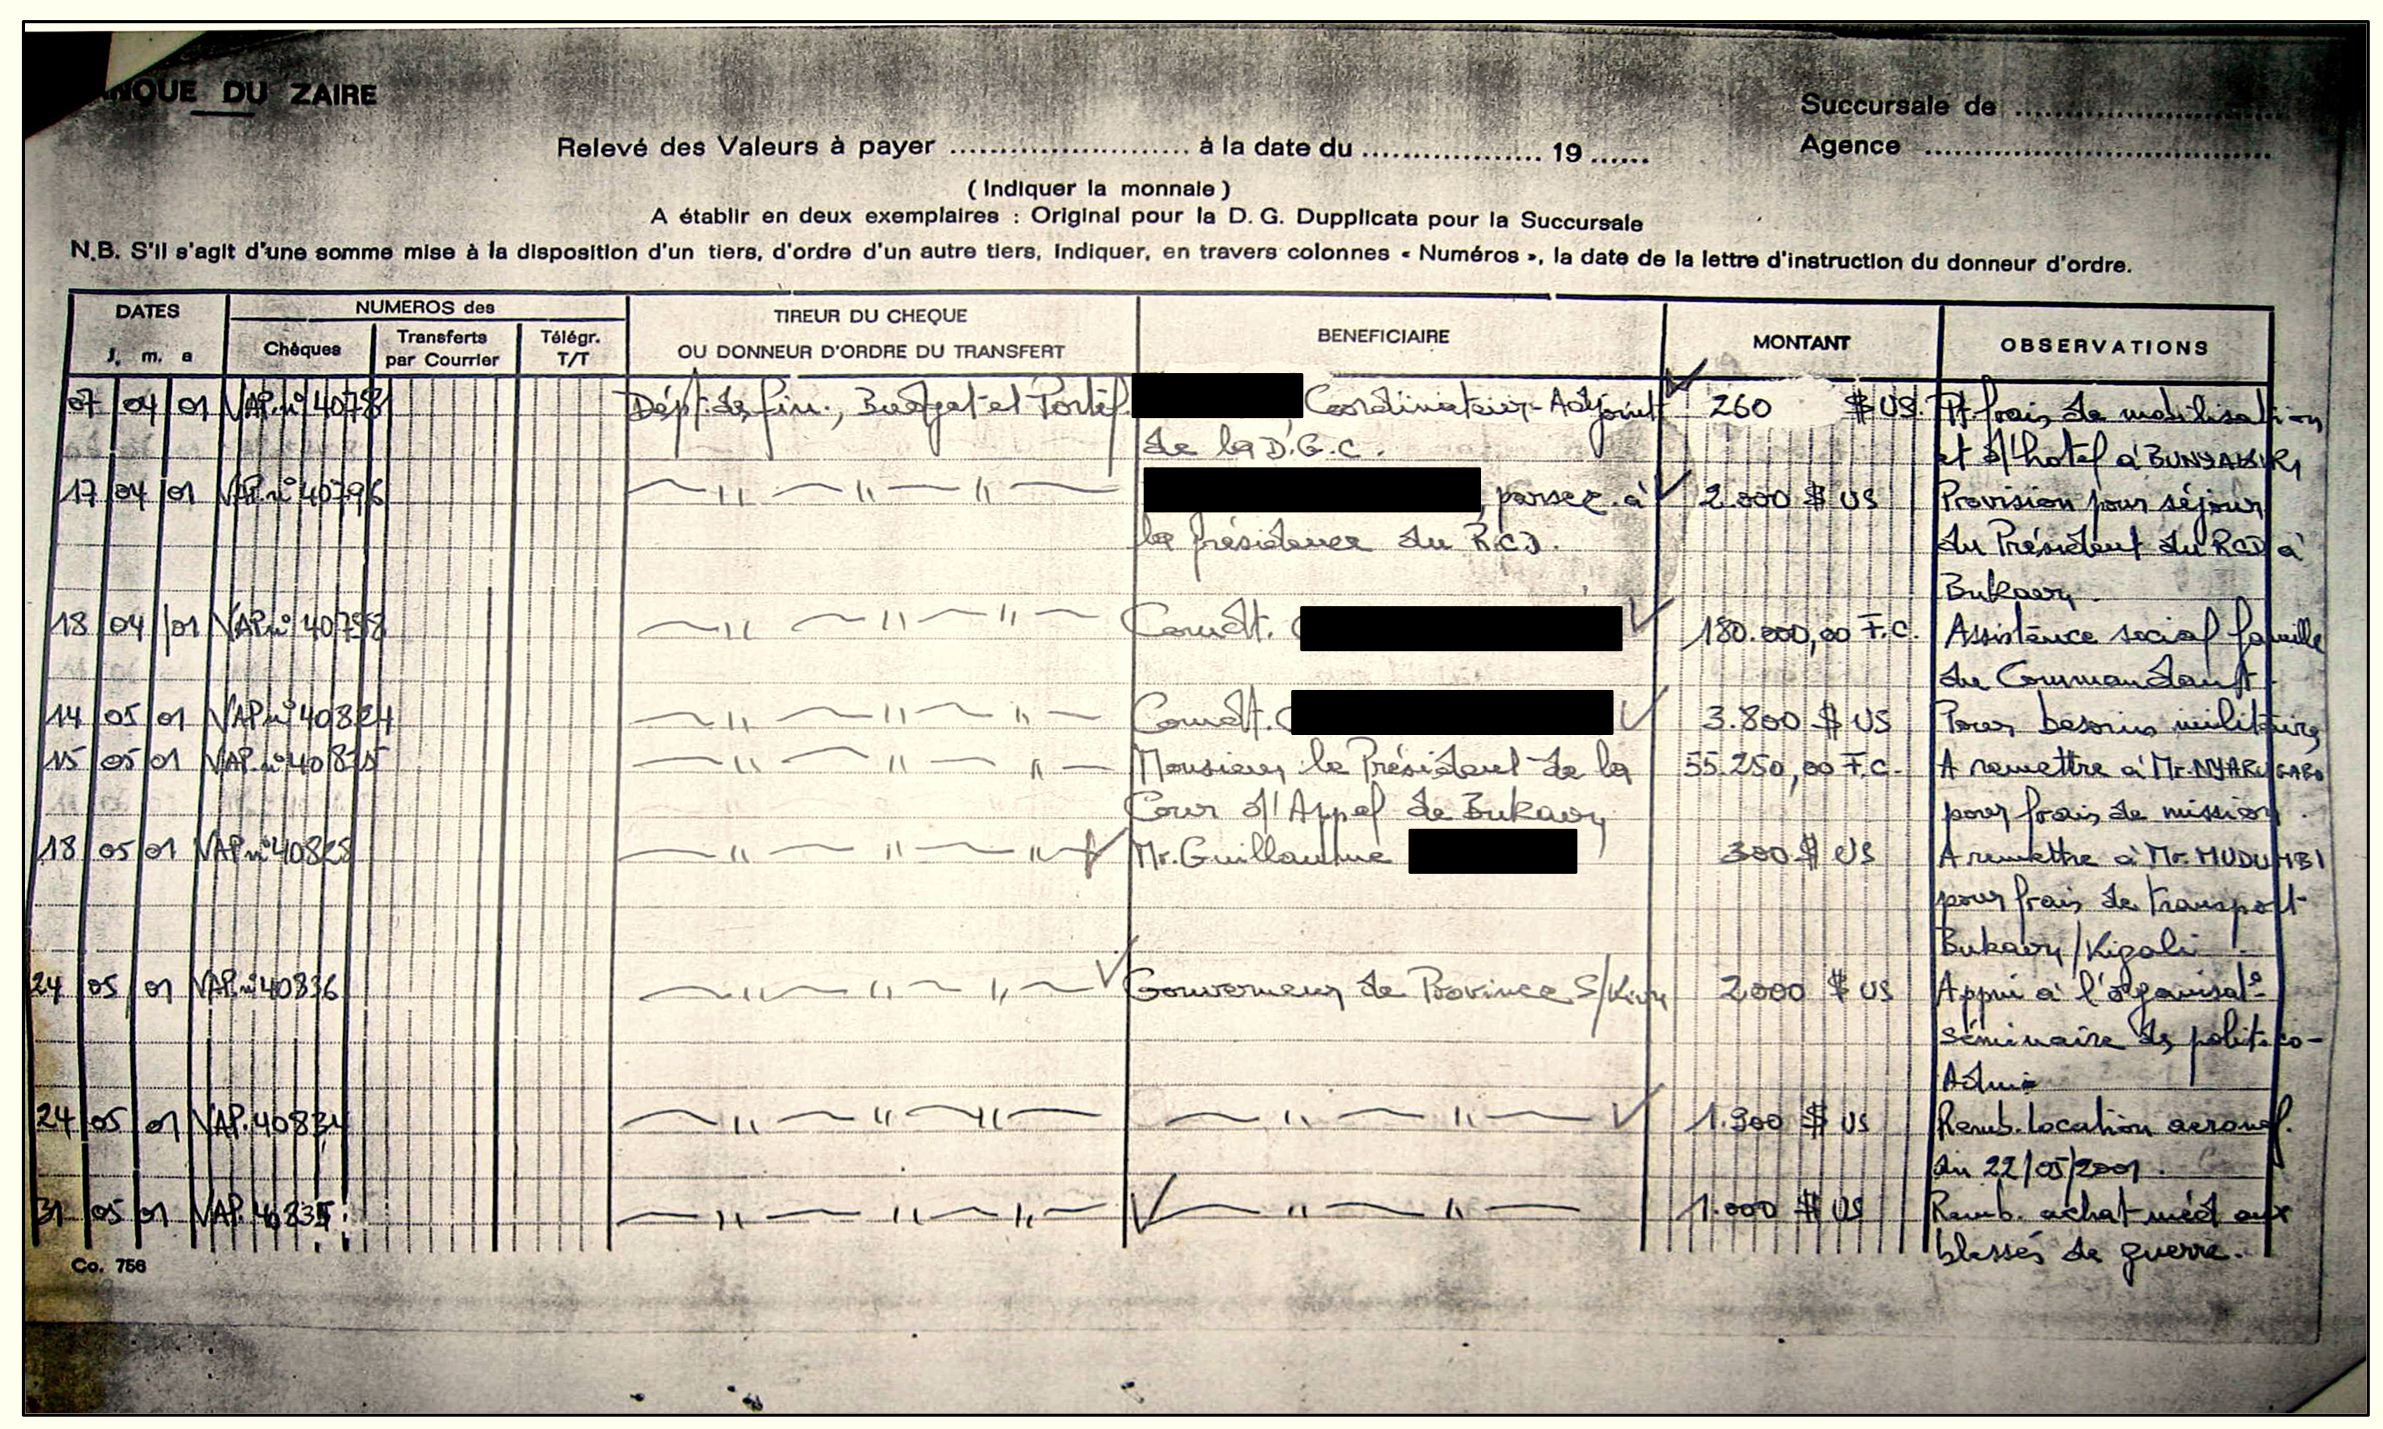 BANQUE DU ZAIRE
Succursale de
Relevé des Valeurs à payer à la date du 19
Agence
( Indiquer la monnaie )
A établir en deux exemplaires : Original pour la D. G. Dupplicata pour la Succursale
N.B. S'il s'agit d'une somme mise à la disposition d'un tiers, d'ordre d'un autre tiers, indiquer, en travers colonnes « Numéros », la date de la lettre d'instruction du donneur d'ordre.
DATES NUMEROS des TIREUR DU CHEQUE BENEFICIAIRE MONTANT OBSERVATIONS
J. m. a Chèques Transferts Télégr. OU DONNEUR D'ORDRE DU TRANSFERT
par Courrier T/T
07 04 01 VAP. n° 40781 Dépt. de fin., Budget et Portef. Coordinateur-Adjoint 260 $ US. Pt. frais de mobilisation
de la D.G.C. et d'hotel à BUNYAKIRI
17 04 01 VAP. n° 40796 —〃—〃—〃— à 2.000 $ US Provision pour séjour
la présidence du RCD. du Président du RCD à
Bukavu
18 04 01 VAP. n° 40798 —〃—〃—〃— Comdt. 180.000,00 F.C. Assistance social famille
du Commandant
14 05 01 VAP. n° 40824 —〃—〃—〃— Comdt. 3.800 $ US Pour besoins militaires
15 05 01 VAP. n° —〃—〃—〃— Monsieur le Président de la 55.250,00 F.C. A remettre à Mr. NYARUGABO
Cour d'Appel de Bukavu pour frais de mission.
18 05 01 VAP n° 40828 —〃—〃—〃— Mr. Guillaume 300 $ US A remettre à Mr. MUDUMBI
pour frais de transport
Bukavu/Kigali
24 05 01 VAP. n° 40836 —〃—〃—〃— Gouverneur de Province S/Kivu 2.000 $ US Appui à l'organisat°
séminaire des politico-
Admi
24 05 01 VAP. 40834 —〃—〃—〃— —〃—〃— 1.300 $ US Remb. location aeronef.
du 22/05/2001.
31 05 01 VAP. —〃—〃—〃— —〃—〃— 1.000 $ US Remb. achat méd aux
blessés de guerre.
Co. 756